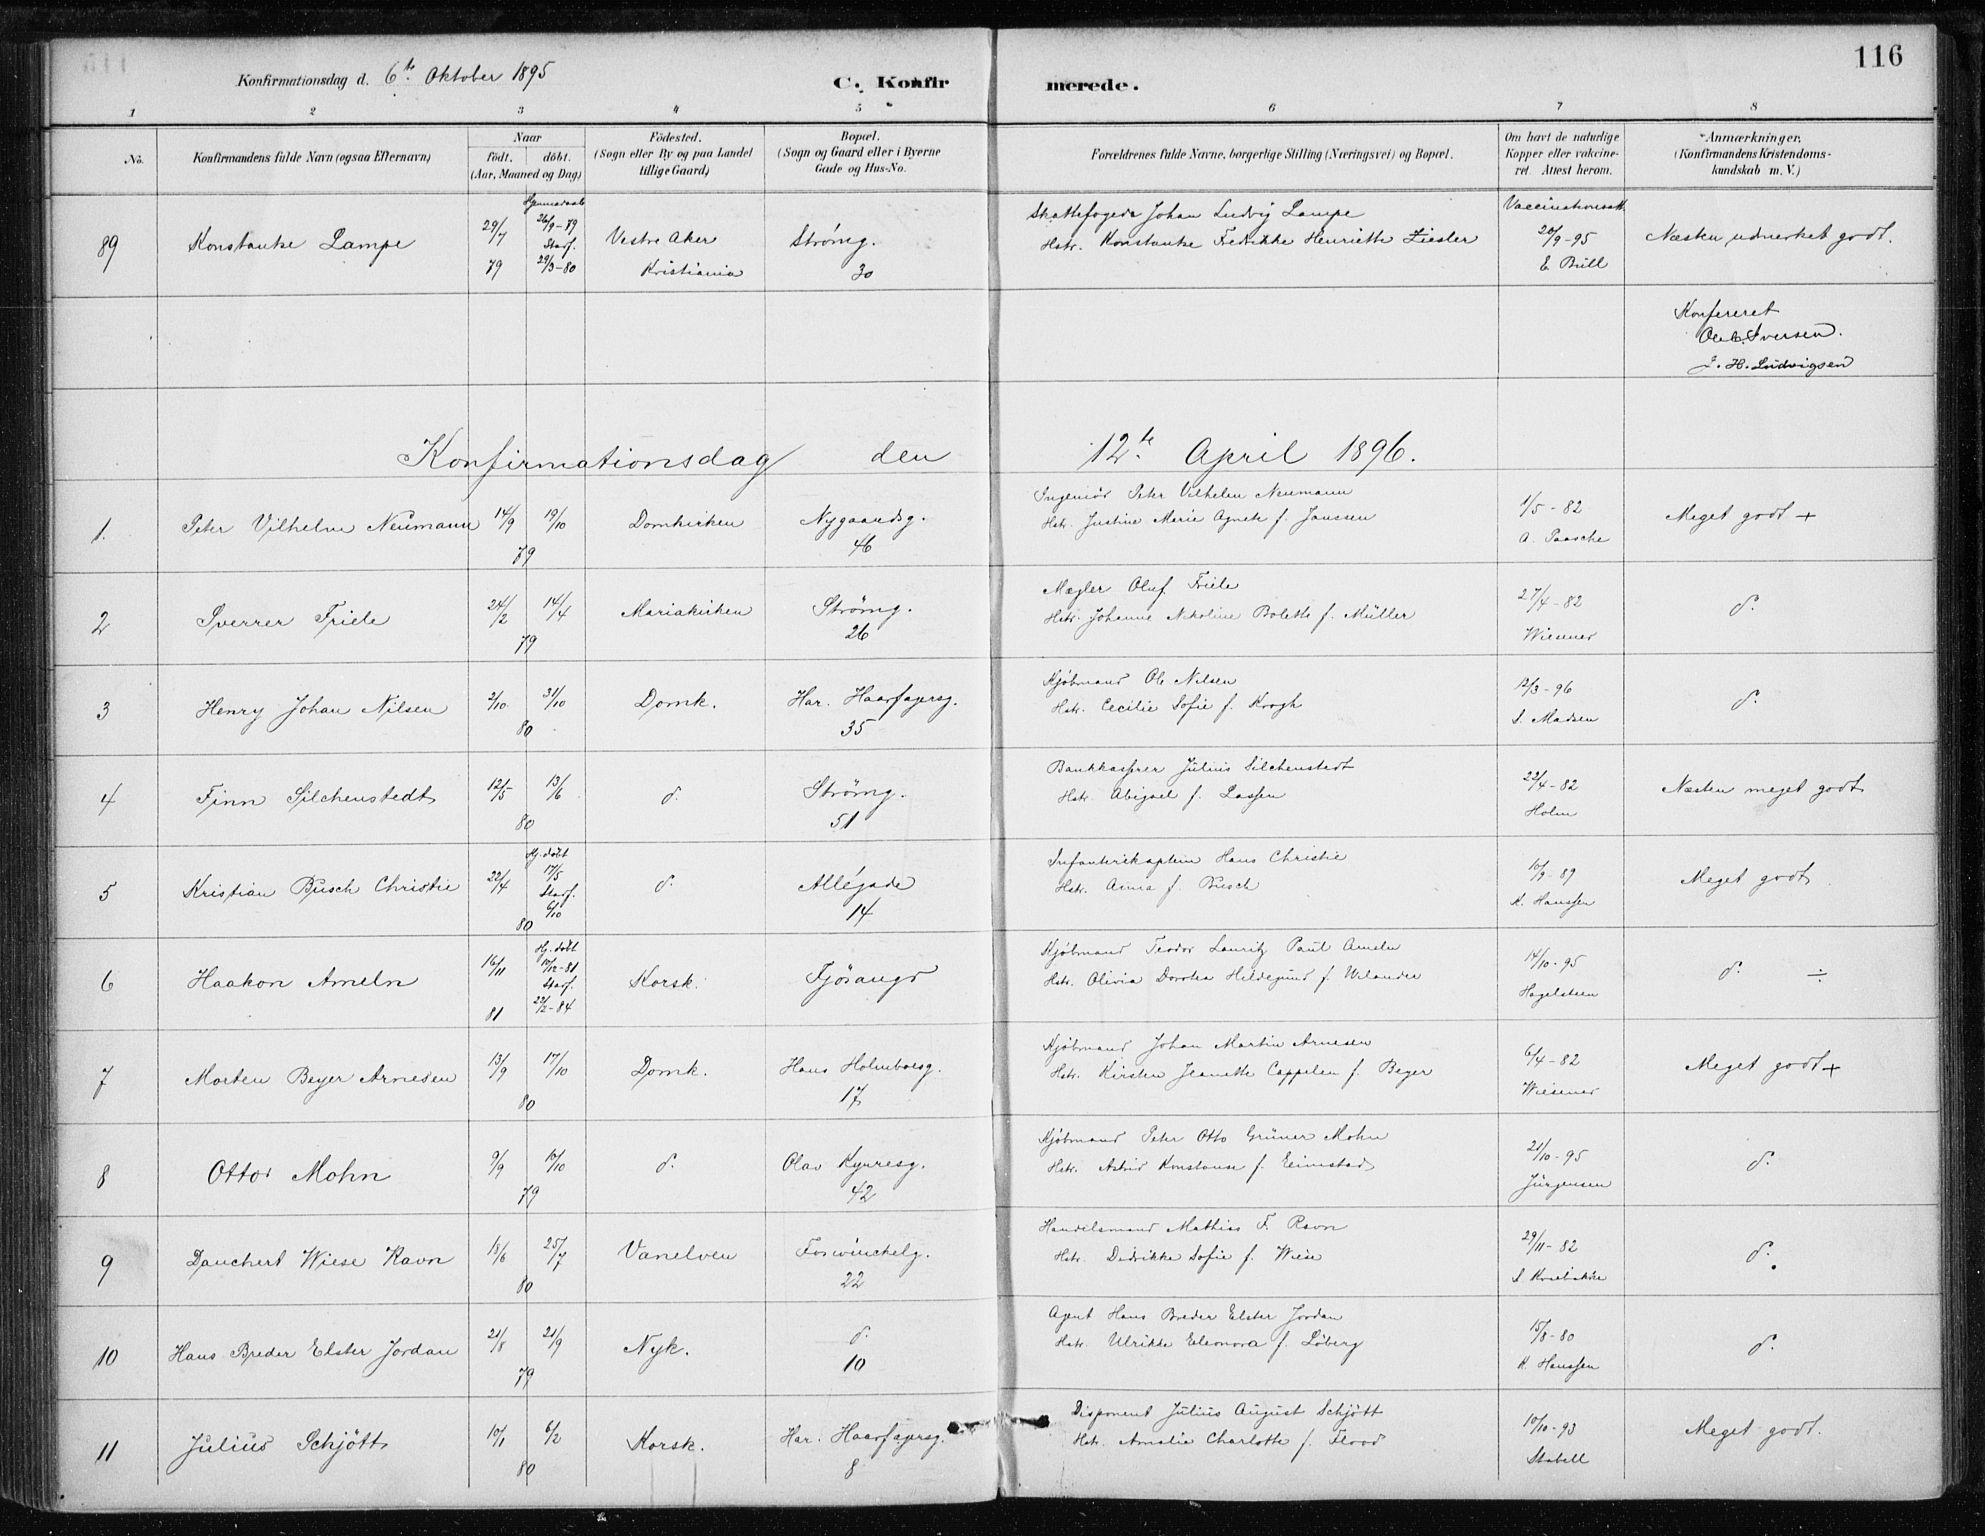 116
Konfirmationsdag d. 6te Oktober 1895
C. Konfir merede.
1 2 3 4 5 6 7 8
No.
Konfirmandens fulde Navn (ogsaa Efternavn)
Naar
födt. döbt.
(Aar, Maaned og Dag)
Födested.
(Sogn eller By og paa Landet
tillige Gaard)
Bopæl.
(Sogn og Gaard eller i Byerne
Gade og Hus-No.
Forældrenes fulde Navne, borgerlige Stilling (Næringsvei) og Bopæl.
Om havt de naturlige
Kopper eller vakcine-
ret Attest herom.
Anmærkninger,
(Konfirmandens Kristendoms-
kundskab m. V.)
89 Konstanke Lampe 29/7 79 Hjemmedøbt 26/9-79 Stadf. 29/3-80 Vestre Aker Kristiania Strömg. 30
Skattefoged Johan Ludvig Lampe
Hstr. Konstanke Fredrikke Henriette Ziesler
Vaccinationsatt. 20/9-95 E. Bull
Næsten udmerket godt.
Konfereret
Ole C. Iversen.
J. H. Ludvigsen
Konfirmationsdag den 12te April 1896.
1. Peter Vilhelm Neumann 14/9 19/10 79 Domkirken Nygaardsg. 46
Ingeniör Peter Vilhelm Neumann
Hstr. Justine Marie Agnete f. Janssen
1/5-82 A. Paasche
Meget godt +
2 Sverrer Friele 24/2 14/4 79 Mariakirken Strömg. 26
Mægler Oluf Friele
Hstr. Johanne Nikoline Bolette f. Müller
27/4-82 Wiesener
d.
3 Henry Johan Nilsen 2/10 31/10 80 Domk. Har. Haarfagersg. 35
Kjöbmand Ole Nilsen
Hstr. Cecilie Sofie f. Krogh
12/3-96 S. Madsen
d.
4 Finn Silchenstedt 12/5 13/6 80 d. Strömg. 51
Bankkasserer Julius Silchenstedt
Hstr. Abigael f. Lassen
22/4-82 Holm
Næsten meget godt
5 Kristian Busch Christie 22/4 80 Hj. döbt 17/5 Stadf. 6/10 d. Allégade 14
Infanterikaptein Hans Christie
Hstr. Anna f. Busch
10/9-89 K. Hanssen
Meget godt
6 Haakon Ameln 16/11 81 Hj. döbt 10/12-81 Stadf. 22/2-84 Korsk. Fjösanger
Kjöbmand Teodor Lauritz Paul Ameln
Hstr. Olivia Dorotea Hildegund f. Welander
14/10-95 Hagelsteen
d. ÷
7 Morten Beyer Arnesen 13/9 17/10 80 Domk. Hans Holmboesg. 17
Kjöbmand Johan Martin Arnesen
Hstr. Kirsten Jeanette Cappelen f. Beyer
6/4-82 Wiesener
Meget godt +
8 Otto Mohn 9/9 10/10 79 d. Olav Kyrresg. 42
Kjöbmand Peter Otto Grüner Mohn
Hstr. Astrid Konstanse f. Eimstad
21/10-95 Jürgensen
d.
9 Danchert Wiese Ravn 18/6 25/7 80 Vanelven Foswinckelg. 22
Handelsmand Mathias F. Ravn
Hstr. Didrikke Sofie f. Wiese
29/11-82
d.
10 Hans Breder Elster Jordan 21/8 21/9 79 Nyk. d. 10
Agent Hans Breder Elster Jordan
Hstr. Ulrikke Eleonora f. Löberg
15/8-80 K. Hanssen
d.
11 Julius Schjött 10/1 6/2 80 Korsk. Har. Haarfagersg. 8
Disponent Julius August Schjött
Hstr. Amalie Charlotte f. Flood
10/10-93 Stabell
Meget godt.